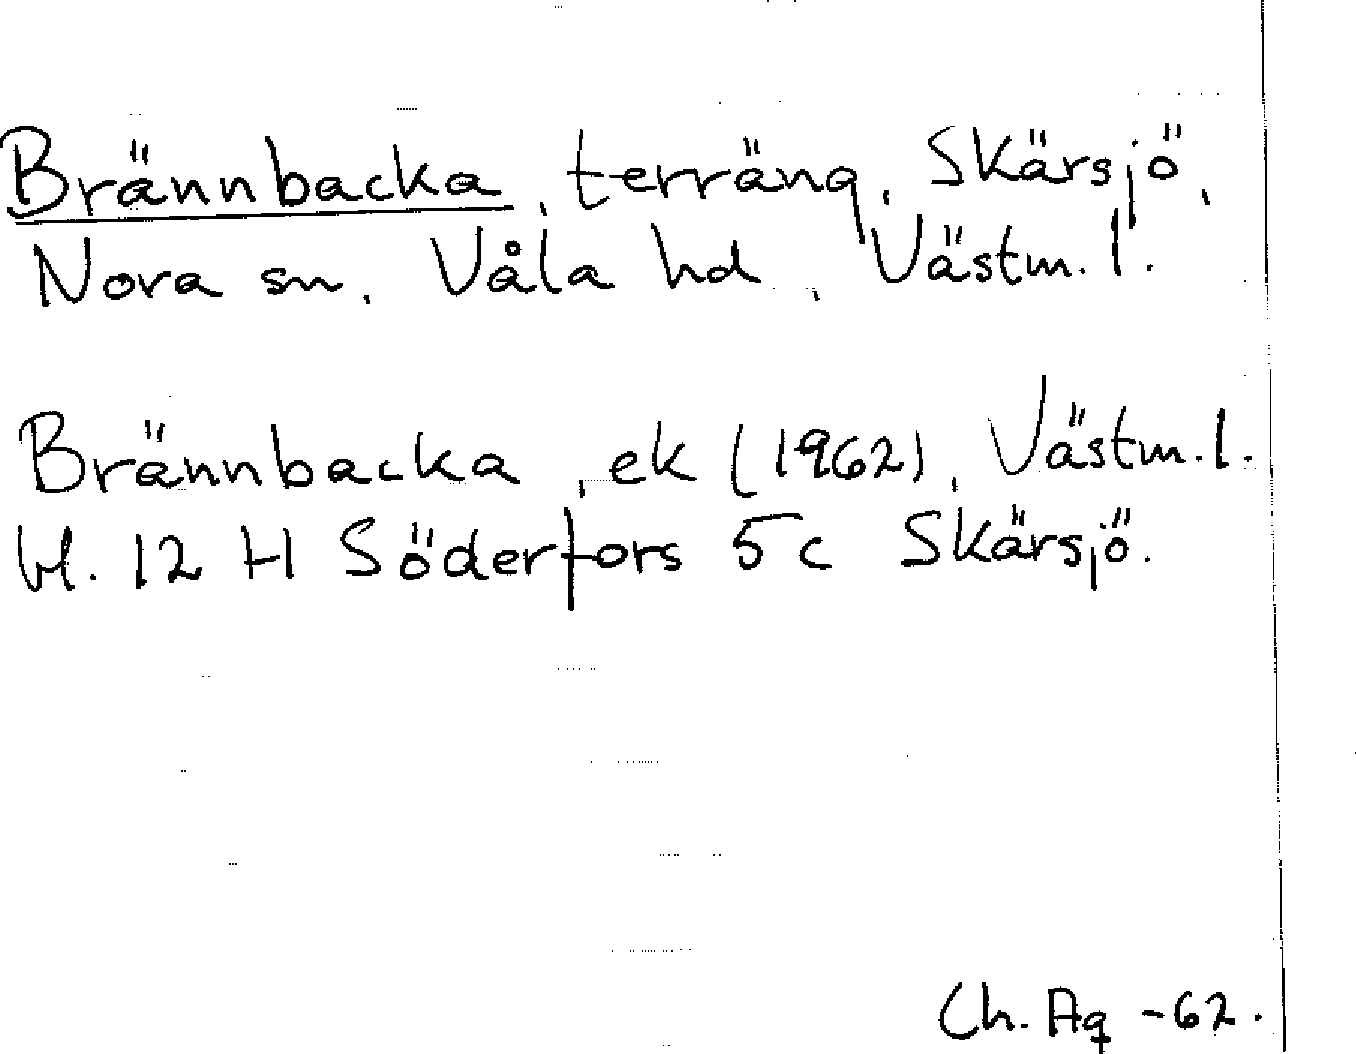 Brännbacka, terräng, Skärsjö,
Nora sn, Våla hd, Västm. l.
Brännbacka, ek (1962), Västm. l.
bl. 12 H Söderfors 5 c Skärsjö.
Ch. Ag -62.